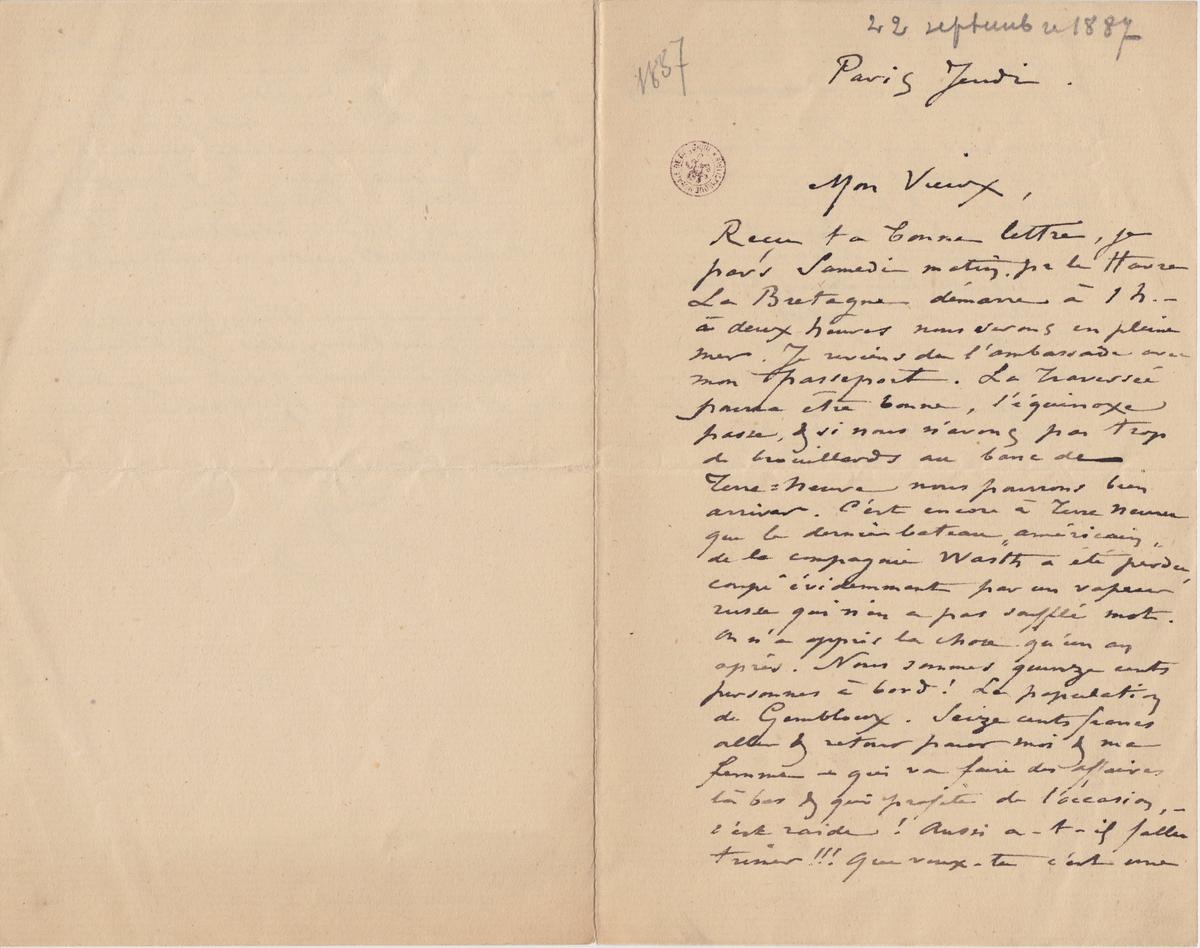 22 septembre 1887
1887
Paris Jeudi.
Mon Vieux,
Reçu ta bonne lettre, je
pars Samedi matin. pr le Havre
La Bretagne démarre à 1 h. –
à deux heures nous serons en pleine
mer. Je reviens de l'ambassade avec
mon passeport. La Traversée
pourra être bonne, l'équinoxe
passe, & si nous n'avons pas trop
de brouillards au banc de
Terre=Neuve nous pourrons bien
arriver. C'est encore à Terre Neuve
que le dernier bateau „américain„
de la compagnie Wasth a été perdu,
coupé évidemment par un vapeur
russe qui n'en a pas soufflé mot.
On n'a appris la chose qu'un an
après. Nous sommes quinze cents
personnes à bord! La population
de Gembloux. Seize cents francs
aller & retour pour moi & ma
femme – qui va faire des affaires
là bas & qui profite de l'occasion, –
c'est raide! Aussi a-t-il fallu
trimer!!! Que veux-tu c'est une